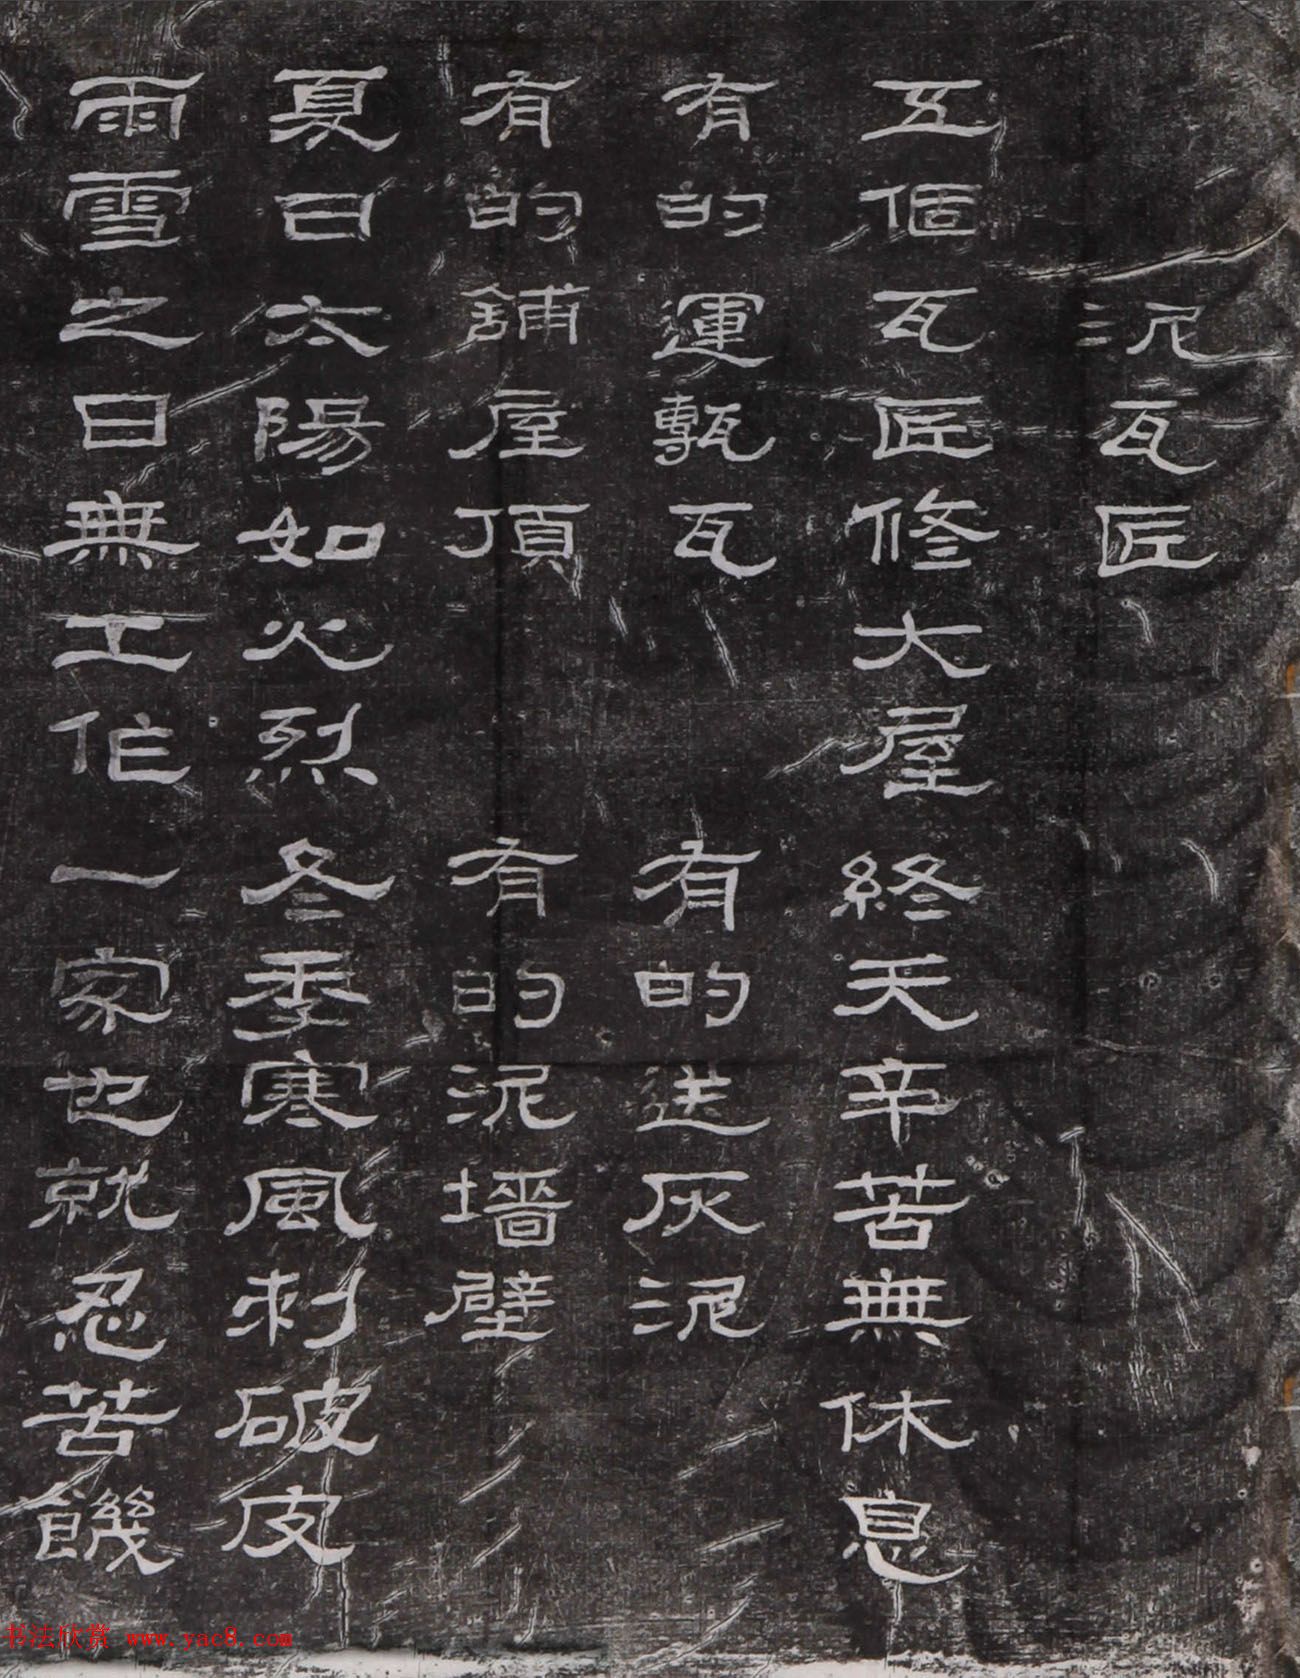 泥瓦匠
五個瓦匠修大屋 終天辛苦無休息
有的運甎瓦 有的送灰泥
有的鋪屋頂 有的泥墻壁
夏日太陽如火烈 冬季寒風刺破皮
雨雪之日無工作 一家也就忍苦饑
书法欣赏 www.yac8.com